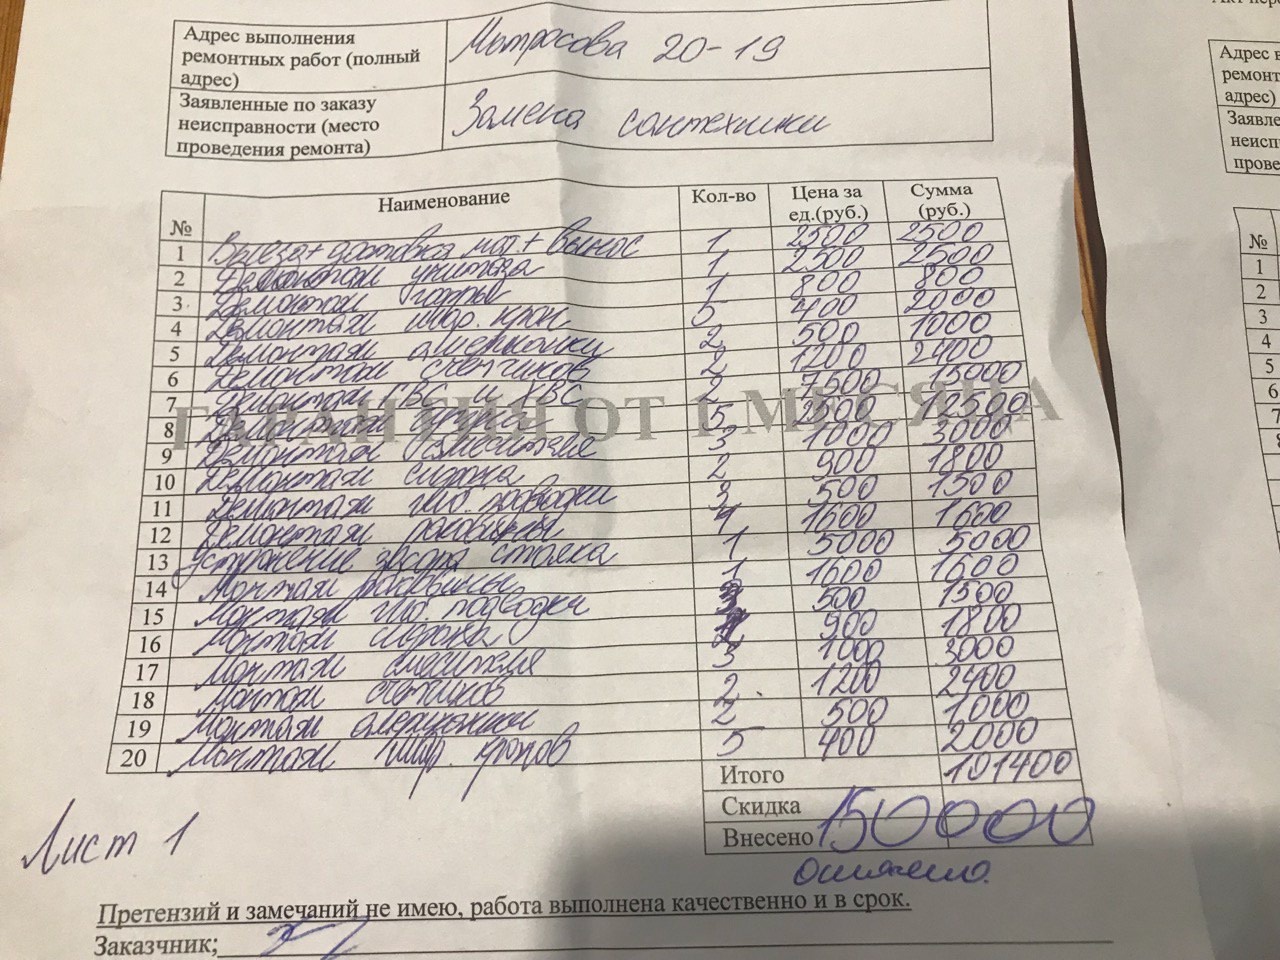 Адрес выполнения
ремонтных работ (полный
адрес)
Матросова 20-19
Заявленные по заказу
неисправности (место
проведения ремонта)
Замена сантехники
№ Наименование Кол-во Цена за ед.(руб.) Сумма (руб.)
1 Выезд + доставка мат. + вынос 1 2500 2500
2 Демонтаж унитаза 1 2500 2500
3 Демонтаж 1 800 800
4 Демонтаж шар. кран 5 400 2000
5 Демонтаж американки 2 500 1000
6 Демонтаж счетчиков 2 1200 2400
7 Демонтаж ГВС и ХВС 2 7500 15000
8 Демонтаж 5 2500 12500
9 Демонтаж смесителя 3 1000 3000
10 Демонтаж сифона 2 900 1800
11 Демонтаж гиб. подводки 3 500 1500
12 Демонтаж раковины 1 1600 1600
13 Устранение засора стояка 1 5000 5000
14 Монтаж раковины 1 1600 1600
15 Монтаж гиб. подводки 3 500 1500
16 Монтаж сифона 2 900 1800
17 Монтаж смесителя 3 1000 3000
18 Монтаж счетчиков 2 1200 2400
19 Монтаж американки 2 500 1000
20 Монтаж шар. кранов 5 400 2000
ГАРАНТИЯ ОТ 1 МЕСЯЦА
Итого 101400
Скидка
Внесено 150000
оплачено.
Лист 1
Претензий и замечаний не имею, работа выполнена качественно и в срок.
Заказчик;
Адрес
ремонт
адрес)
Заявле
неисп
прове
№
1
2
3
4
5
6
7